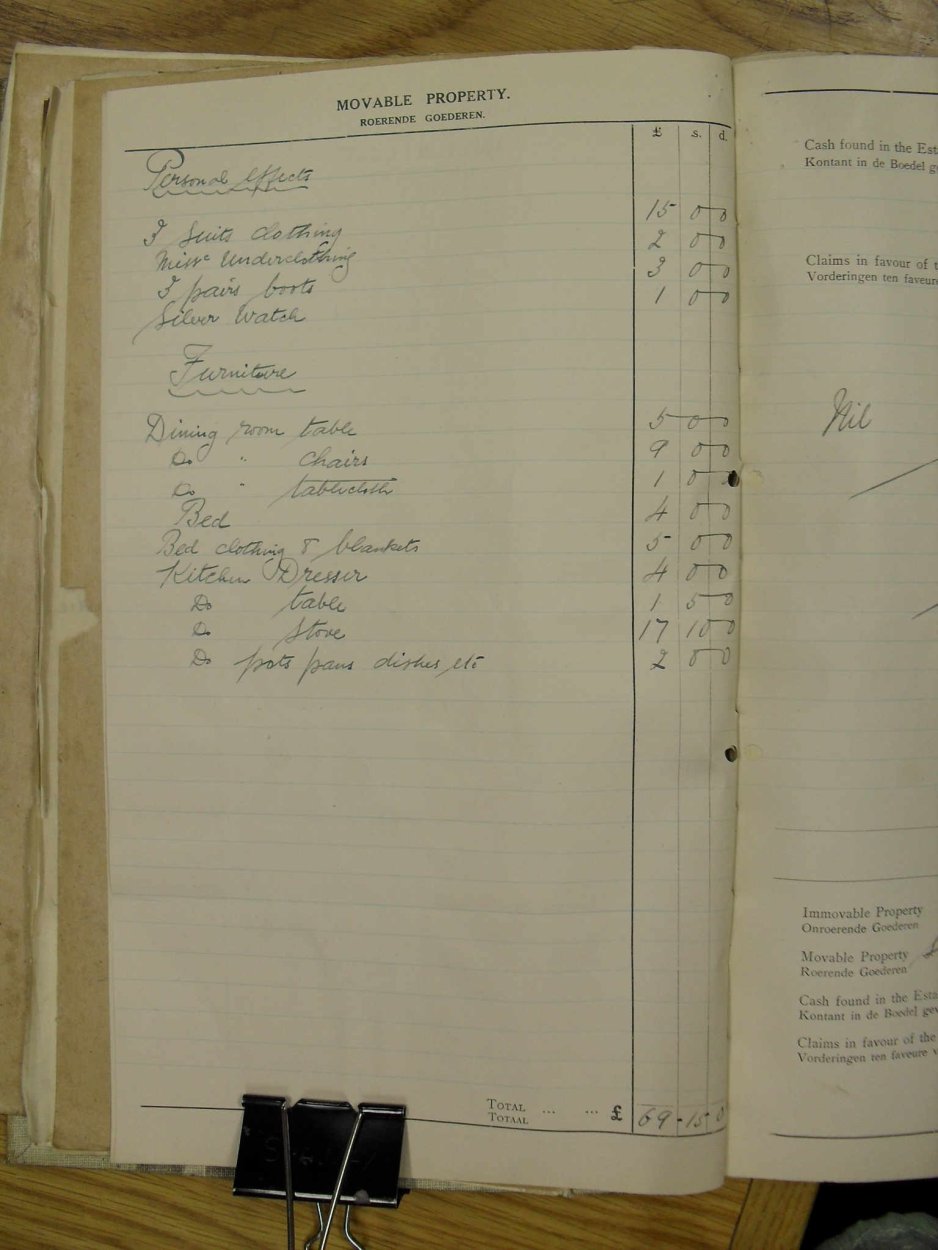 MOVABLE PROPERTY.
ROERENDE GOEDEREN.
£ s. d.
Personal effects
3 Suits clothing 15 0 0
Miss Underclothing 2 0 0
3 pairs boots 3 0 0
Silver Watch 1 0 0
Furniture
Dining room table 5 0 0
Do " chairs 9 0 0
Do " tablecloth 1 0 0
Bed 4 0 0
Bed clothing & blankets 5 0 0
Kitchen Dresser 4 0 0
Do table 1 5 0
Do Stove 17 10 0
Do pots pans dishes etc 2 0 0
TOTAL ... ... £ 69-15 0
TOTAAL
Cash found in the Est
Kontant in de Boedel g
Claims in favour of t
Vorderingen ten faveure
Nil
Immovable Property
Onroerende Goederen
Movable Property
Roerende Goederen
Cash found in the Esta
Kontant in de Boedel gev
Claims in favour of the
Vorderingen ten faveure v